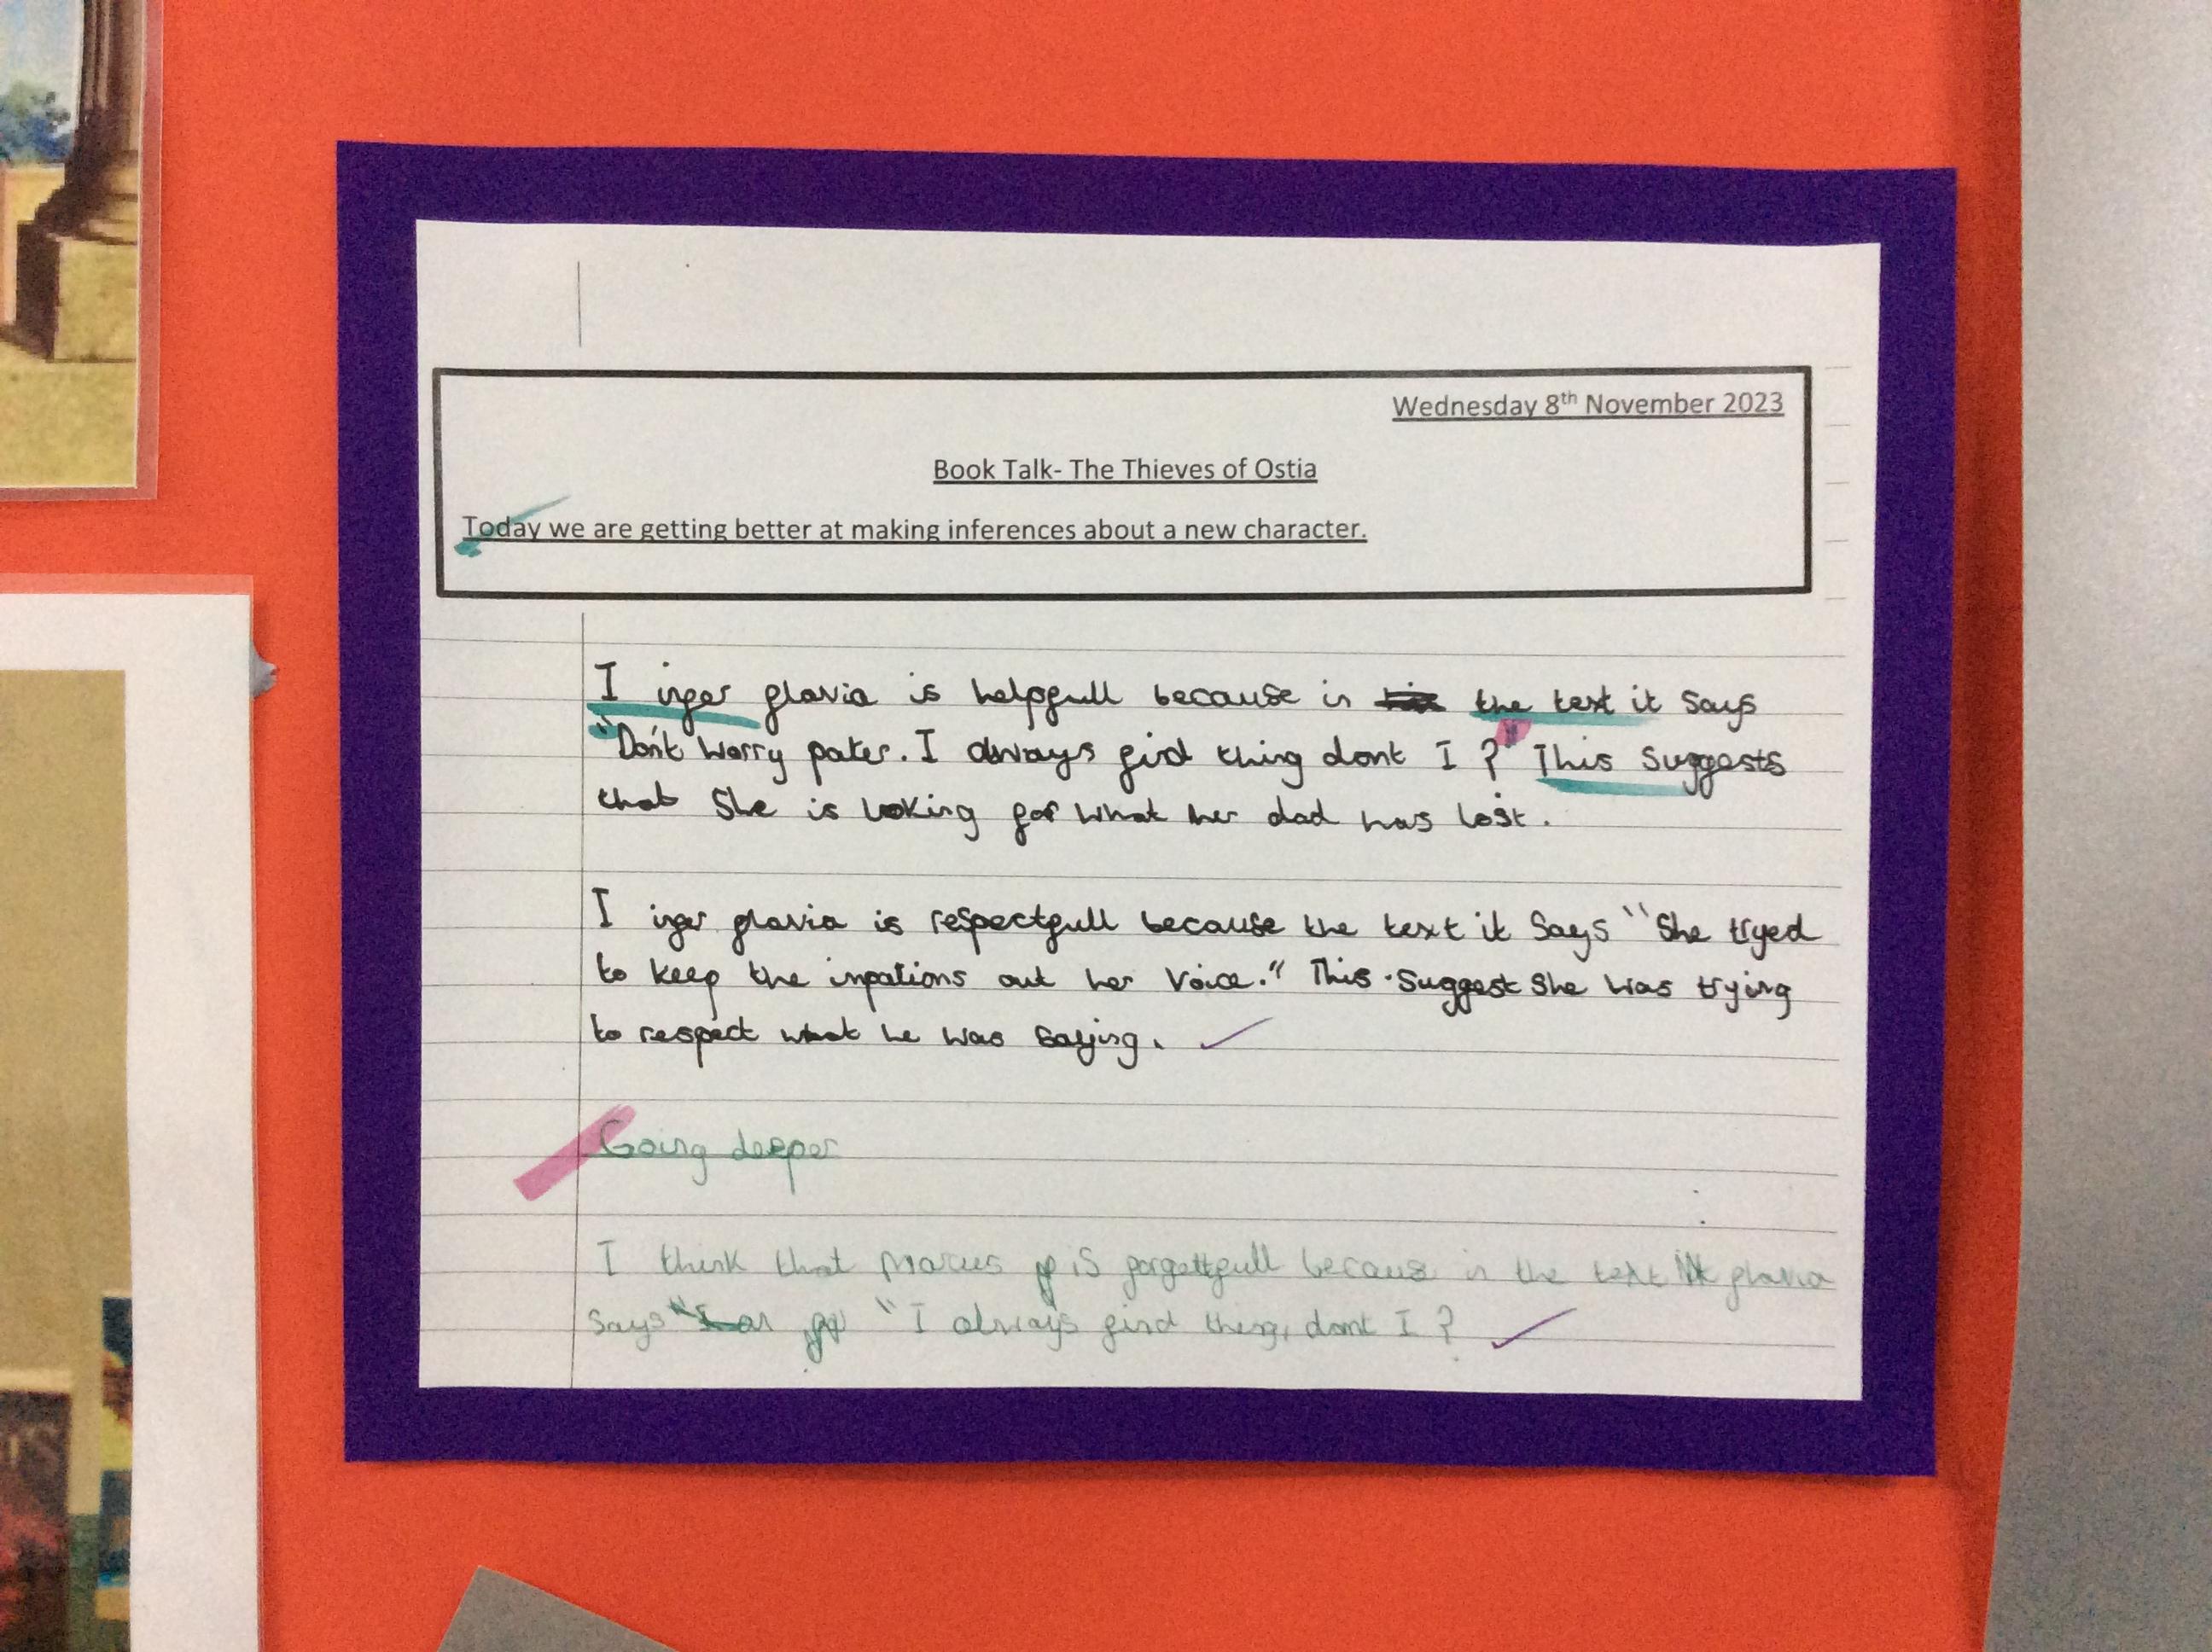 Wednesday 8th November 2023
Book Talk- The Thieves of Ostia
Today we are getting better at making inferences about a new character.
I infer flavia is helpfull because in the text it says
"Don't worry pater. I always find thing dont I ?" This suggests
that she is looking for what her dad has lost.
I infer flavia is respectfull because the text it says "She tryed
to keep the inpations out her voice." This suggest she was trying
to respect what he was saying.
Going deeper
I think that Marcus is forgettfull because in the text flavia
says "I always find thing, dont I ?